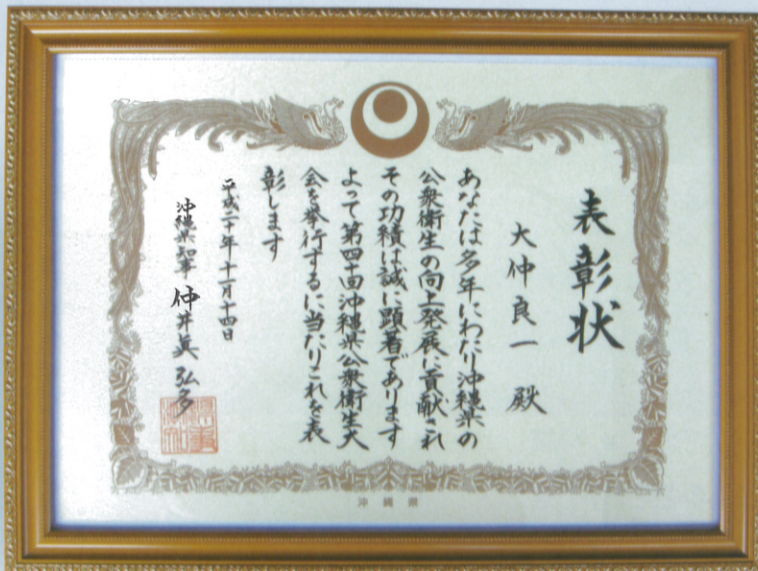 表彰状
大仲良一 殿
あなたは多年にわたり沖縄県の
公衆衛生の向上発展に貢献され
その功績は誠に顕著であります
よって第四十回沖縄県公衆衛生大
会を挙行するに当たりこれを表
彰します
平成二十年十一月十四日
沖縄県知事 仲井眞弘多
沖縄県